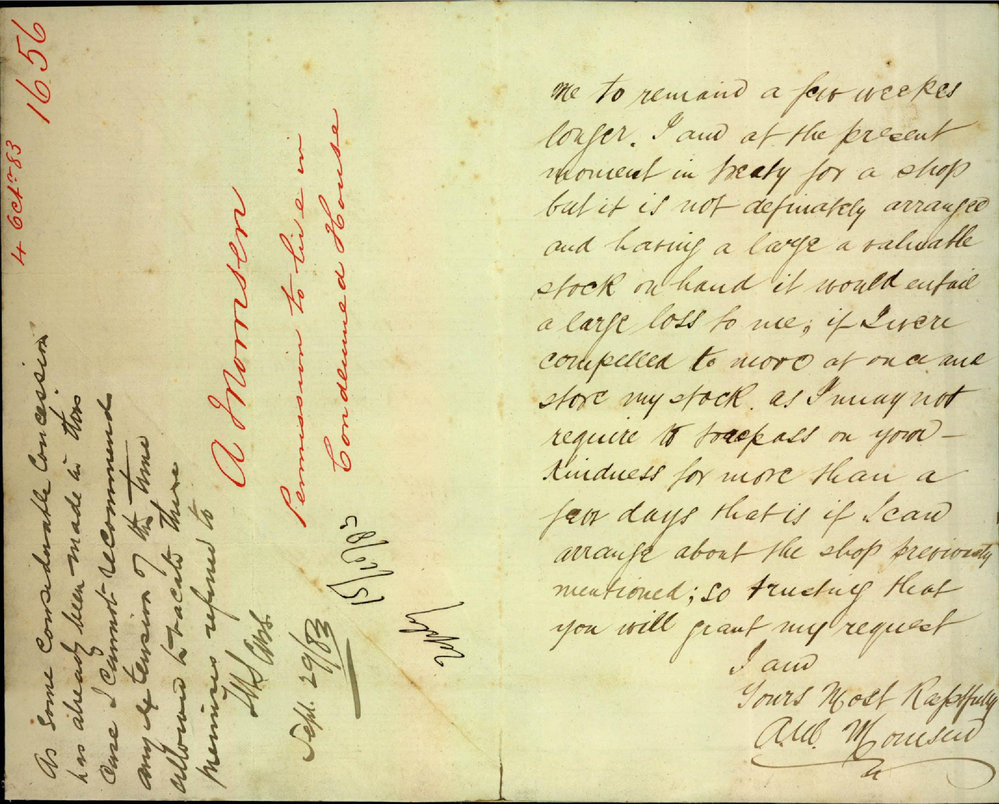 4 Octr 83
1656
A Monsen
Permission to live in
Condemned House
As some considerable concession
has already been made in this
case I cannot recommend
any extension of the time
allowed to vacate these
premises referred to
Sept. 29/83
me to remaind a few weekes
longer. I am at the present
moment in treaty for a shop
but it is not definately arranged
and having a large a valuable
stock on hand it would entail
a large loss to me; if I were
compelled to move at once and
store my stock. as I may not
require to trespass on your
kindness for more than a
few days that is if I can
arrange about the shop previously
mentioned; so trusting that
you will grant my request
I am
Yours Most Respfully
Monsen